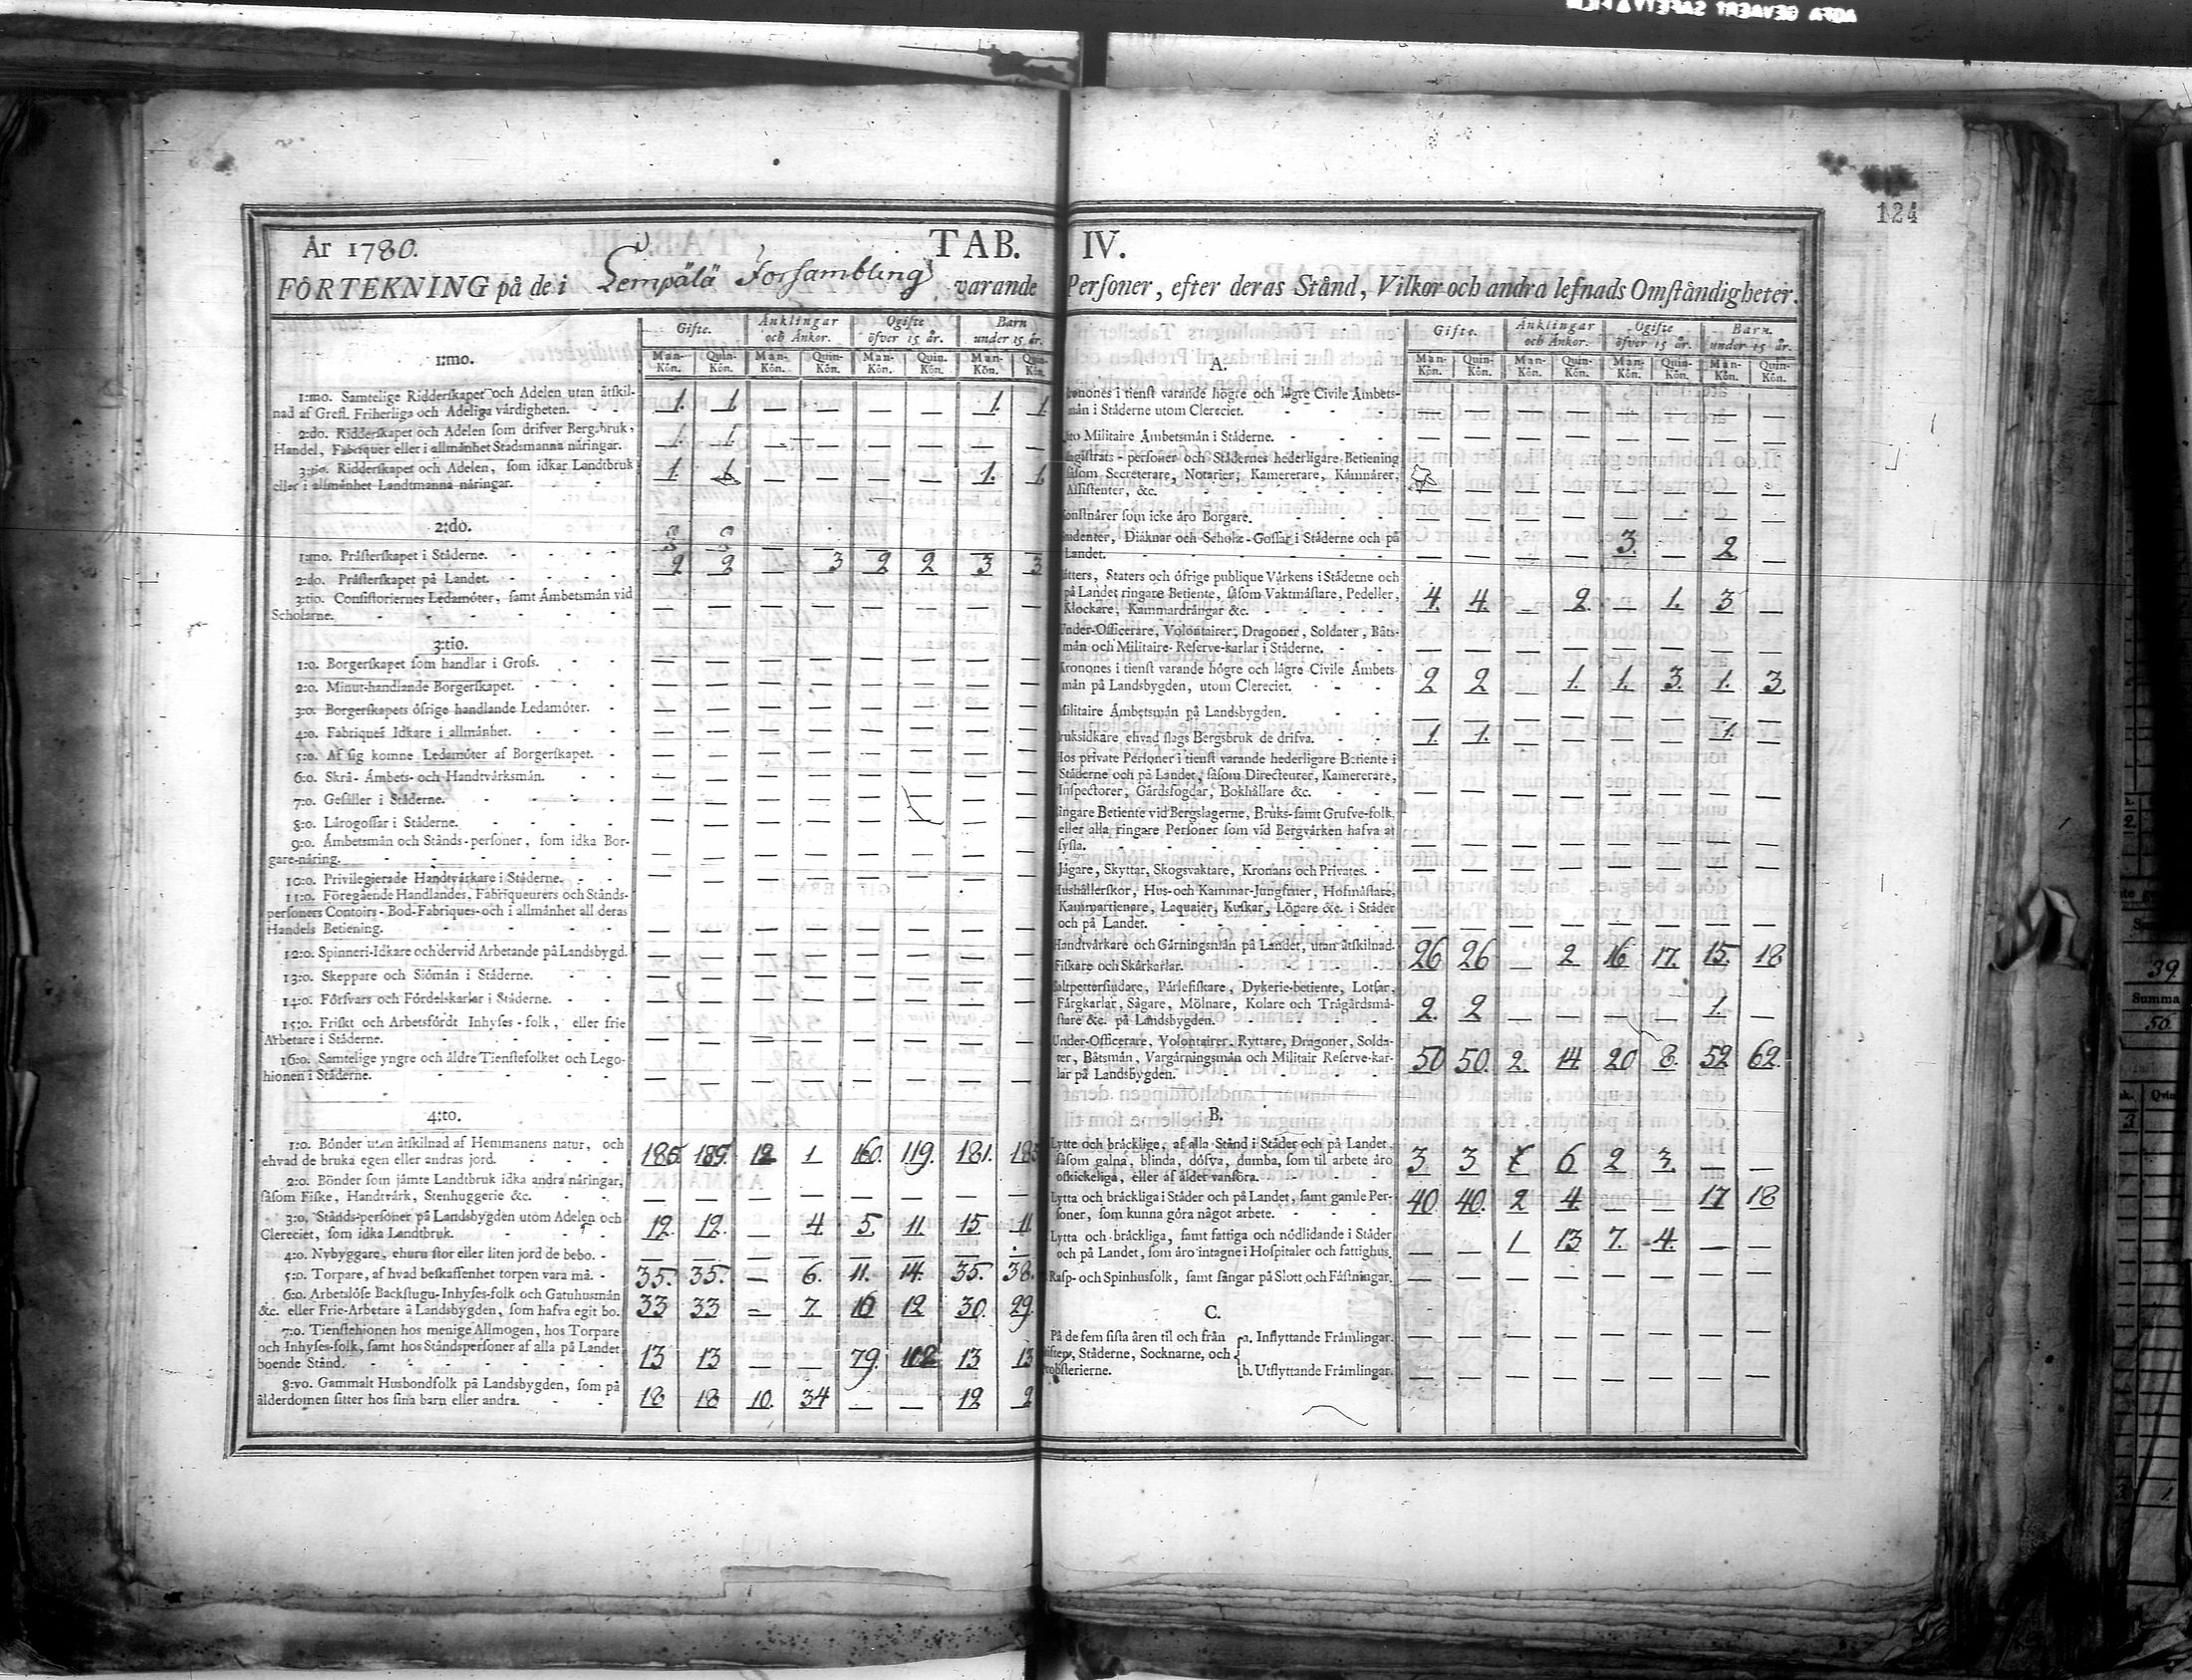 124
År 1780. TAB. IV.
FÖRTEKNING på de i Lempälä Försambling varande Personer, efter deras Stånd, Vilkor och andra lefnads Omständigheter.
Gifte. Änklingar och Änkor. Ogifte öfver 15 år. Barn under 15 år.
Man-Kön. Quin-Kön. Man-Kön. Quin-Kön. Man-Kön. Quin-Kön. Man-Kön. Quin-Kön.
1:mo.
1:mo. Samtelige Ridderskapet och Adelen utan åtskil-
nad af Grefl. Friherliga och Adeliga värdigheten. 1. 1. — — — — 1. 1
2:do. Ridderskapet och Adelen som drifver Bergsbruk,
Handel, Fabriquer eller i allmänhet Stadsmanna näringar. 1. 1. — — — — — —
3:tio. Ridderskapet och Adelen, som idkar Landtbruk
eller i allmänhet Landtmanna näringar. 1. 1. — — — — 1. 1
2:do.
1:mo. Prästerskapet i Städerne.
2:do. Prästerskapet på Landet. 2 2 — 3 2 2 3 3
3:tio. Consistoriernes Ledamöter, samt Ämbetsmän vid
Scholarne. — — — — — — — —
3:tio.
1:o. Borgerskapet som handlar i Gross. — — — — — — — —
2:o. Minut-handlande Borgerskapet. — — — — — — — —
3:o. Borgerskapets öfrige handlande Ledamöter. — — — — — — — —
4:o. Fabriques Idkare i allmänhet. — — — — — — — —
5:o. Af sig komne Ledamöter af Borgerskapet. — — — — — — — —
6:o. Skrå- Ämbets- och Handtvärksmän. — — — — — — — —
7:o. Gesäller i Städerne. — — — — — — — —
8:o. Lärogossar i Städerne. — — — — — — — —
9:o. Ämbetsmän och Stånds-personer, som idka Bor-
gare-näring. — — — — — — — —
10:o. Privilegierade Handtvärkare i Städerne. — — — — — — — —
11:o. Föregående Handlandes, Fabriqueurers och Stånds-
personers Contoirs- Bod- Fabriques- och i allmänhet all deras
Handels Betiening. — — — — — — — —
12:o. Spinneri-Idkare och dervid Arbetande på Landsbygd. — — — — — — — —
13:o. Skeppare och Siömän i Städerne. — — — — — — — —
14:o. Försvars och Fördelskarlar i Städerne. — — — — — — — —
15:o. Friskt och Arbetsfördt Inhyses-folk, eller frie
Arbetare i Städerne. — — — — — — — —
16:o. Samtelige yngre och äldre Tienstefolket och Lego-
hionen i Städerne. — — — — — — — —
4:to.
1:o. Bönder utan åtskilnad af Hemmanens natur, och
ehvad de bruka egen eller andras jord. 12 1 160. 119. 181.
2:o. Bönder som jämte Landtbruk idka andra näringar,
såsom Fiske, Handtvärk, Stenhuggerie &c. — — — — — — — —
3:o. Stånds-personer på Landsbygden utom Adelen och
Clereciet, som idka Landtbruk. 12. 12. — 4. 5. 11. 15. 11
4:o. Nybyggare, ehuru stor eller liten jord de bebo. — — — — — — — —
5:o. Torpare, af hvad beskaffenhet torpen vara må. 35. 35. — 6. 11. 14. 35. 38.
6:o. Arbetslöse Backstugu-Inhyses-folk och Gatuhusmän
&c. eller Frie-Arbetare å Landsbygden, som hafva egit bo. 33 33 — 7. 12 30. 29.
7:o. Tienstehionen hos menige Allmogen, hos Torpare
och Inhyses-folk, samt hos Ståndspersoner af alla på Landet
boende Stånd. 13 13 — — 79. 13 13
8:vo. Gammalt Husbondfolk på Landsbygden, som på
ålderdomen sitter hos sina barn eller andra. 18 18 10. 34 — — 12 2
Gifte. Änklingar och Änkor. Ogifte öfver 15 år. Barn. under 15 år.
Man-Kön. Quin-Kön. Man-Kön. Quin-Kön. Man-Kön. Quin-Kön. Man-Kön. Quin-Kön.
A.
i tienst varande högre och lägre Civile Ämbets-
män i Städerne utom Clereciet. — — — — — — — —
Militaire Ämbetsmän i Städerne. — — — — — — — —
personer och Städernes hederligare Betiening
såsom Secreterare, Notarier, Kamererare, Kämnärer,
Assistenter, &c. — — — — — — — —
som icke äro Borgare. — — — — — — — —
Diäknar och Schole-Gossar i Städerne och på
Landet. — — — — 3. — 2 —
Staters och öfrige publique Värkens i Städerne och
på Landet ringare Betiente, såsom Vaktmästare, Pedeller,
Klockare, Kammardrängar &c. 4. 4. — 2. — 1. 3 —
Under-Officerare, Volontairer, Dragoner, Soldater, Båts-
män och Militaire-Reserve-karlar i Städerne. — — — — — — — —
Kronones i tienst varande högre och lägre Civile Ämbets-
män på Landsbygden, utom Clereciet. 2 2 — 1. 1. 3. 1. 3.
Militaire Ämbetsmän på Landsbygden. — — — — — — — —
ehvad slags Bergsbruk de drifva. 1. 1. — — — — 1. —
Hos private Personer i tienst varande hederligare Betiente i
Städerne och på Landet, såsom Directeurer, Kamererare,
Inspectorer, Gårdsfogdar, Bokhållare &c. — — — — — — — —
Betiente vid Bergslagerne, Bruks- samt Grufve-folk,
eller alla ringare Personer som vid Bergvärken hafva at
syssla. — — — — — — — —
Jägare, Skyttar, Skogsvaktare, Kronans och Privates. — — — — — — — —
Hushållerskor, Hus- och Kammar-Jungfruer, Hofmästare,
Kammartienare, Laquaier, Kuskar, Löpare &c. i Städer
och på Landet. — — — — — — — —
Handtvärkare och Gärningsmän på Landet, utan åtskilnad. 26 26 — 2 16 17. 15. 18
Fiskare och Skärkarlar.
Saltpettersiudare, Pärlefiskare, Dykerie-betiente, Lotsar,
Färgkarlar, Sågare, Mölnare, Kolare och Trägårdsmä-
stare &c. på Landsbygden. 2. 2 — — — — 1. —
Under-Officerare, Volontairer, Ryttare, Dragoner, Solda-
ter, Båtsmän, Vargärningsmän och Militair Reserve-kar-
lar på Landsbygden. 50 50. 2. 14 20 8. 52 62.
B.
Lytte och bräcklige, af alla Stånd i Städer och på Landet,
såsom galna, blinda, döfva, dumba, som til arbete äro
oskickeliga, eller af ålder vanföra. 3. 3 6 2 3. — —
Lytta och bräckliga i Städer och på Landet, samt gamle Per-
soner, som kunna göra något arbete. 40 40. 2 4. — — 17 18
Lytta och bräckliga, samt fattiga och nödlidande i Städer
och på Landet, som äro intagne i Hospitaler och fattighus. — — 1 13 7. 4. — —
Rasp- och Spinhusfolk, samt fångar på Slott och Fästningar. — — — — — — — —
C.
På de fem sista åren til och från
Städerne, Socknarne, och
a. Inflyttande Främlingar. — — — — — — — —
b. Utflyttande Främlingar. — — — — — — — —
39
Summa
56.